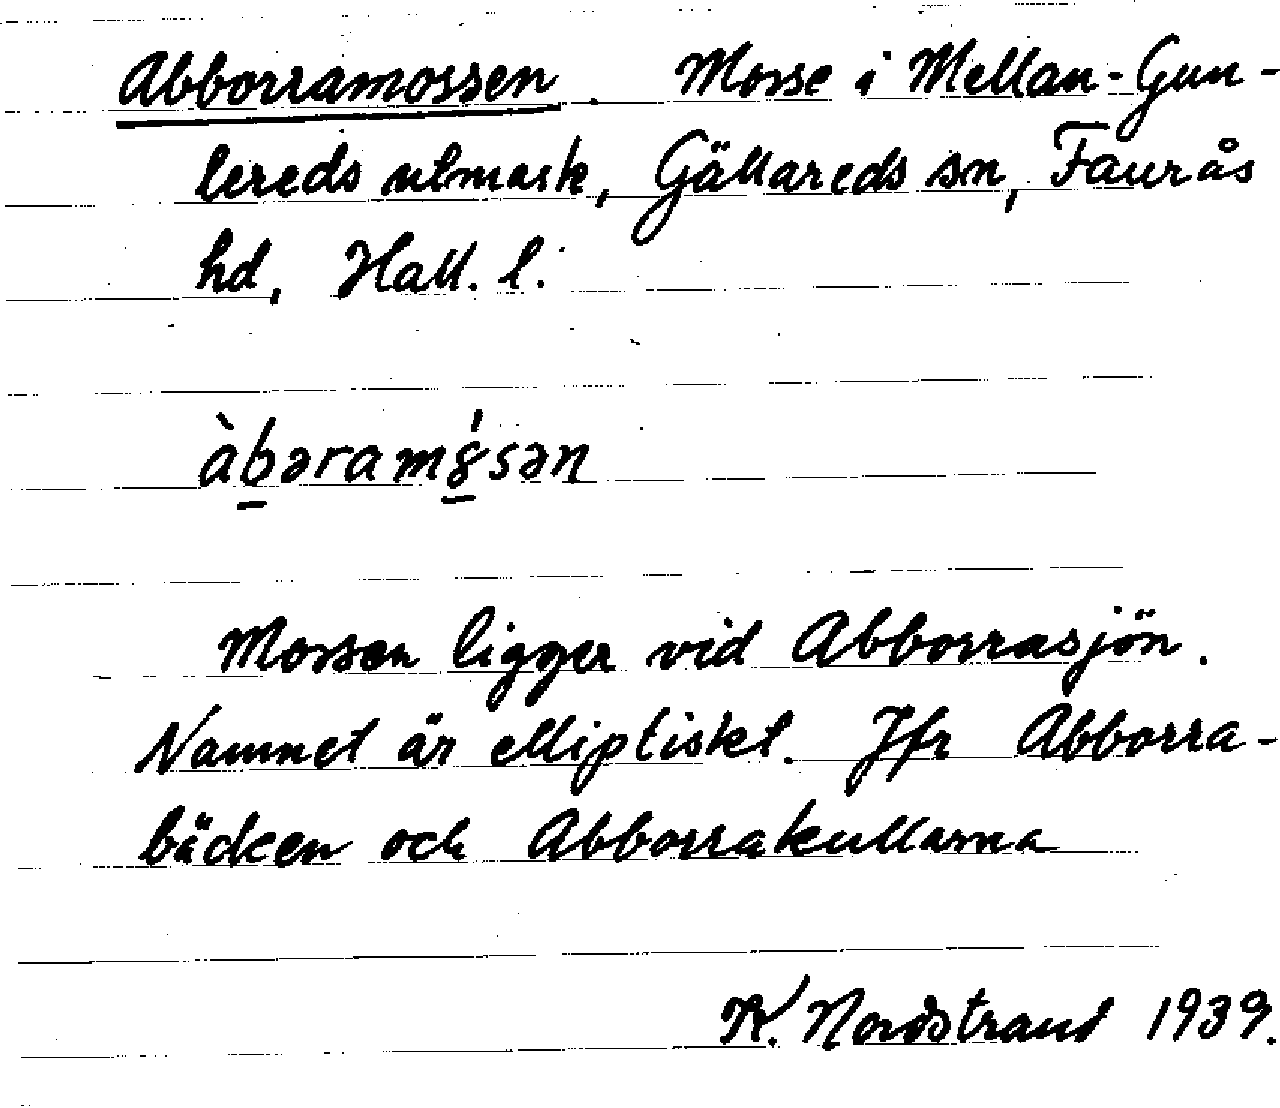 Abborramossen. Mosse i Mellan-Gun-
lereds utmark, Gällareds sn, Faurås
hd, Hall. l.
àb̲əramó̲sən
Mossen ligger vid Abborrasjön.
Namnet är elliptiskt. Jfr Abborra-
bäcken och Abborrakullarna
K. Nordstrand 1939.